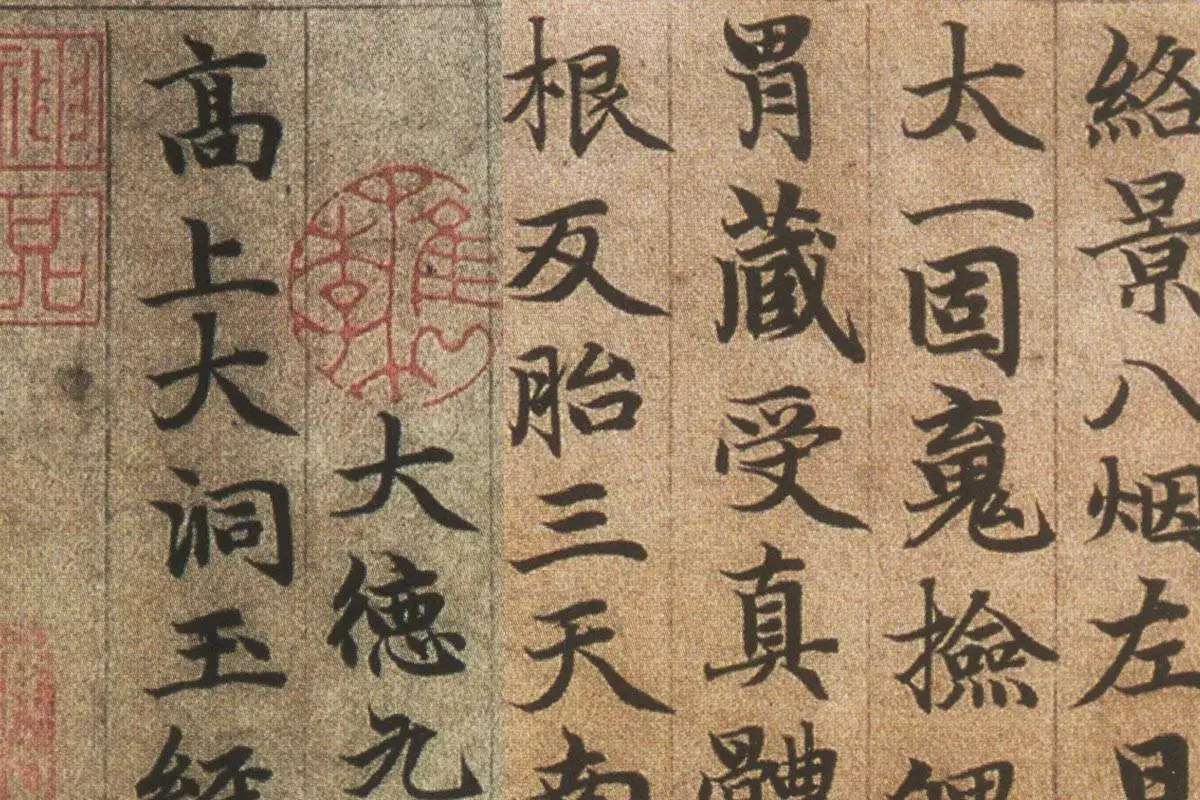 絡景八烟左
太一固䰟撿
胃藏受真體
根反胎三天南
大德九
高上大洞玉經